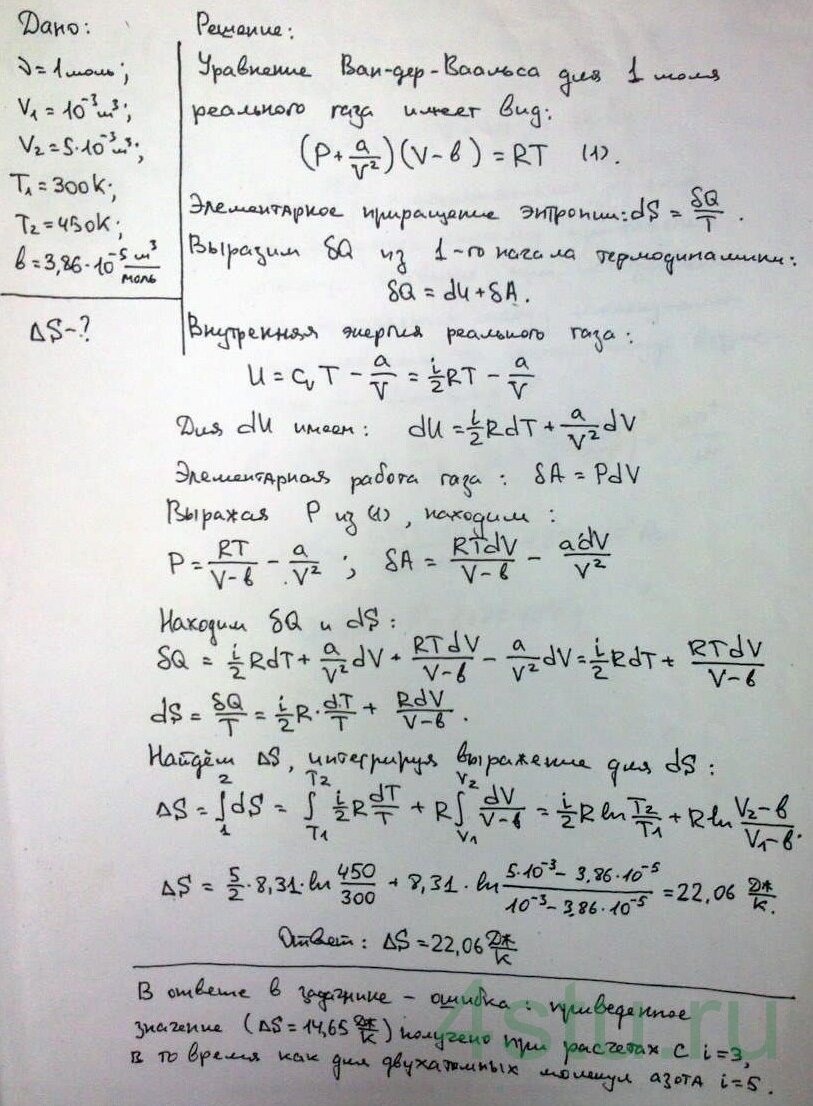 Дано:
ν = 1 моль;
V₁ = 10⁻³ м³;
V₂ = 5·10⁻³ м³;
T₁ = 300K;
T₂ = 450K;
b = 3,86·10⁻⁵ м³/моль
ΔS-?
Решение:
Уравнение Ван-дер-Ваальса для 1 моля
реального газа имеет вид:
(P + a/V²)(V - b) = RT (1).
Элементарное приращение энтропии: dS = δQ/T.
Выразим δQ из 1-го начала термодинамики:
δQ = dU + δA.
Внутренняя энергия реального газа:
U = CᵥT - a/V = i/2 RT - a/V
Для dU имеем: dU = i/2 RdT + a/V² dV
Элементарная работа газа: δA = PdV
Выражая P из (1), находим:
P = RT/(V-b) - a/V²; δA = RTdV/(V-b) - adV/V²
Находим δQ и dS:
δQ = i/2 RdT + a/V² dV + RTdV/(V-b) - a/V² dV = i/2 RdT + RTdV/(V-b)
dS = δQ/T = i/2 R·dT/T + RdV/(V-b).
Найдём ΔS, интегрируя выражение для dS:
ΔS = ∫₁² dS = ∫_{T₁}^{T₂} i/2 R dT/T + R ∫_{V₁}^{V₂} dV/(V-b) = i/2 R ln T₂/T₁ + R ln (V₂-b)/(V₁-b).
ΔS = 5/2 · 8,31 · ln 450/300 + 8,31 · ln (5·10⁻³ - 3,86·10⁻⁵)/(10⁻³ - 3,86·10⁻⁵) = 22,06 Дж/К.
Ответ: ΔS = 22,06 Дж/К
В ответе в задачнике - ошибка: приведенное
значение (ΔS = 14,65 Дж/К) получено при расчетах с i=3,
в то время как для двухатомных молекул азота i=5.
4stu.ru